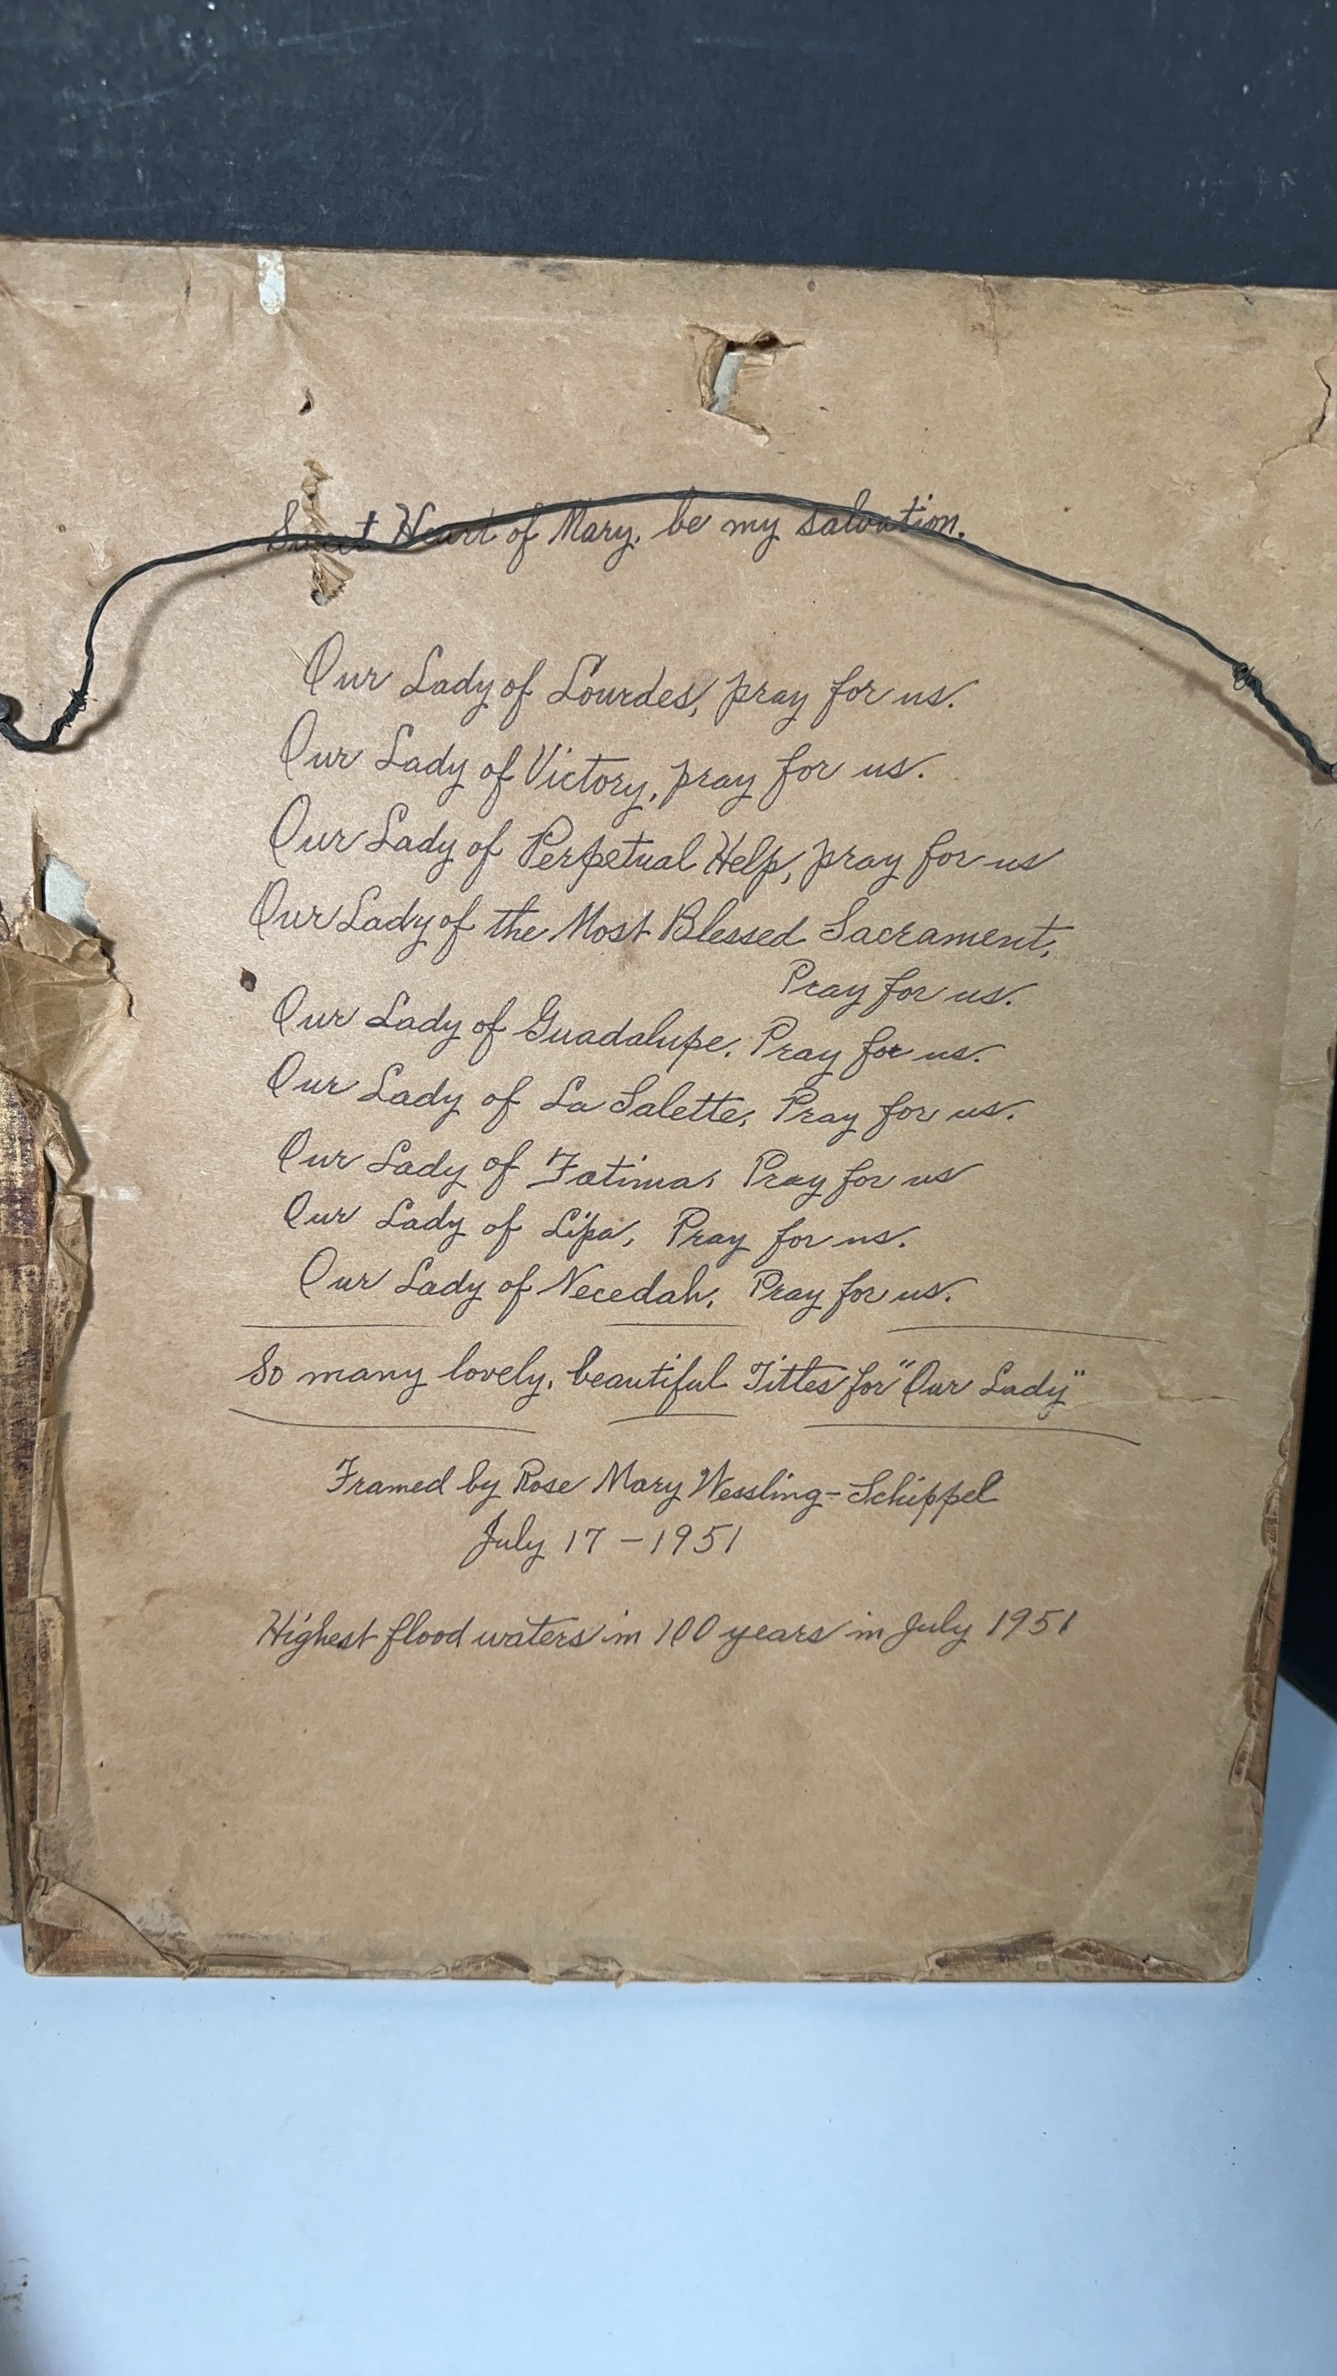 Sweet Heart of Mary, be my salvation.
Our Lady of Lourdes, pray for us.
Our Lady of Victory, pray for us.
Our Lady of Perpetual Help, pray for us
Our Lady of the Most Blessed Sacrament,
Pray for us.
Our Lady of Guadalupe. Pray for us.
Our Lady of La Salette, Pray for us.
Our Lady of Fatima, Pray for us
Our Lady of Lipa, Pray for us.
Our Lady of Necedah, Pray for us.
So many lovely, beautiful Tittes for "Our Lady"
Framed by Rose Mary Wessling-Schippel
July 17 - 1951
Highest flood waters in 100 years in July 1951